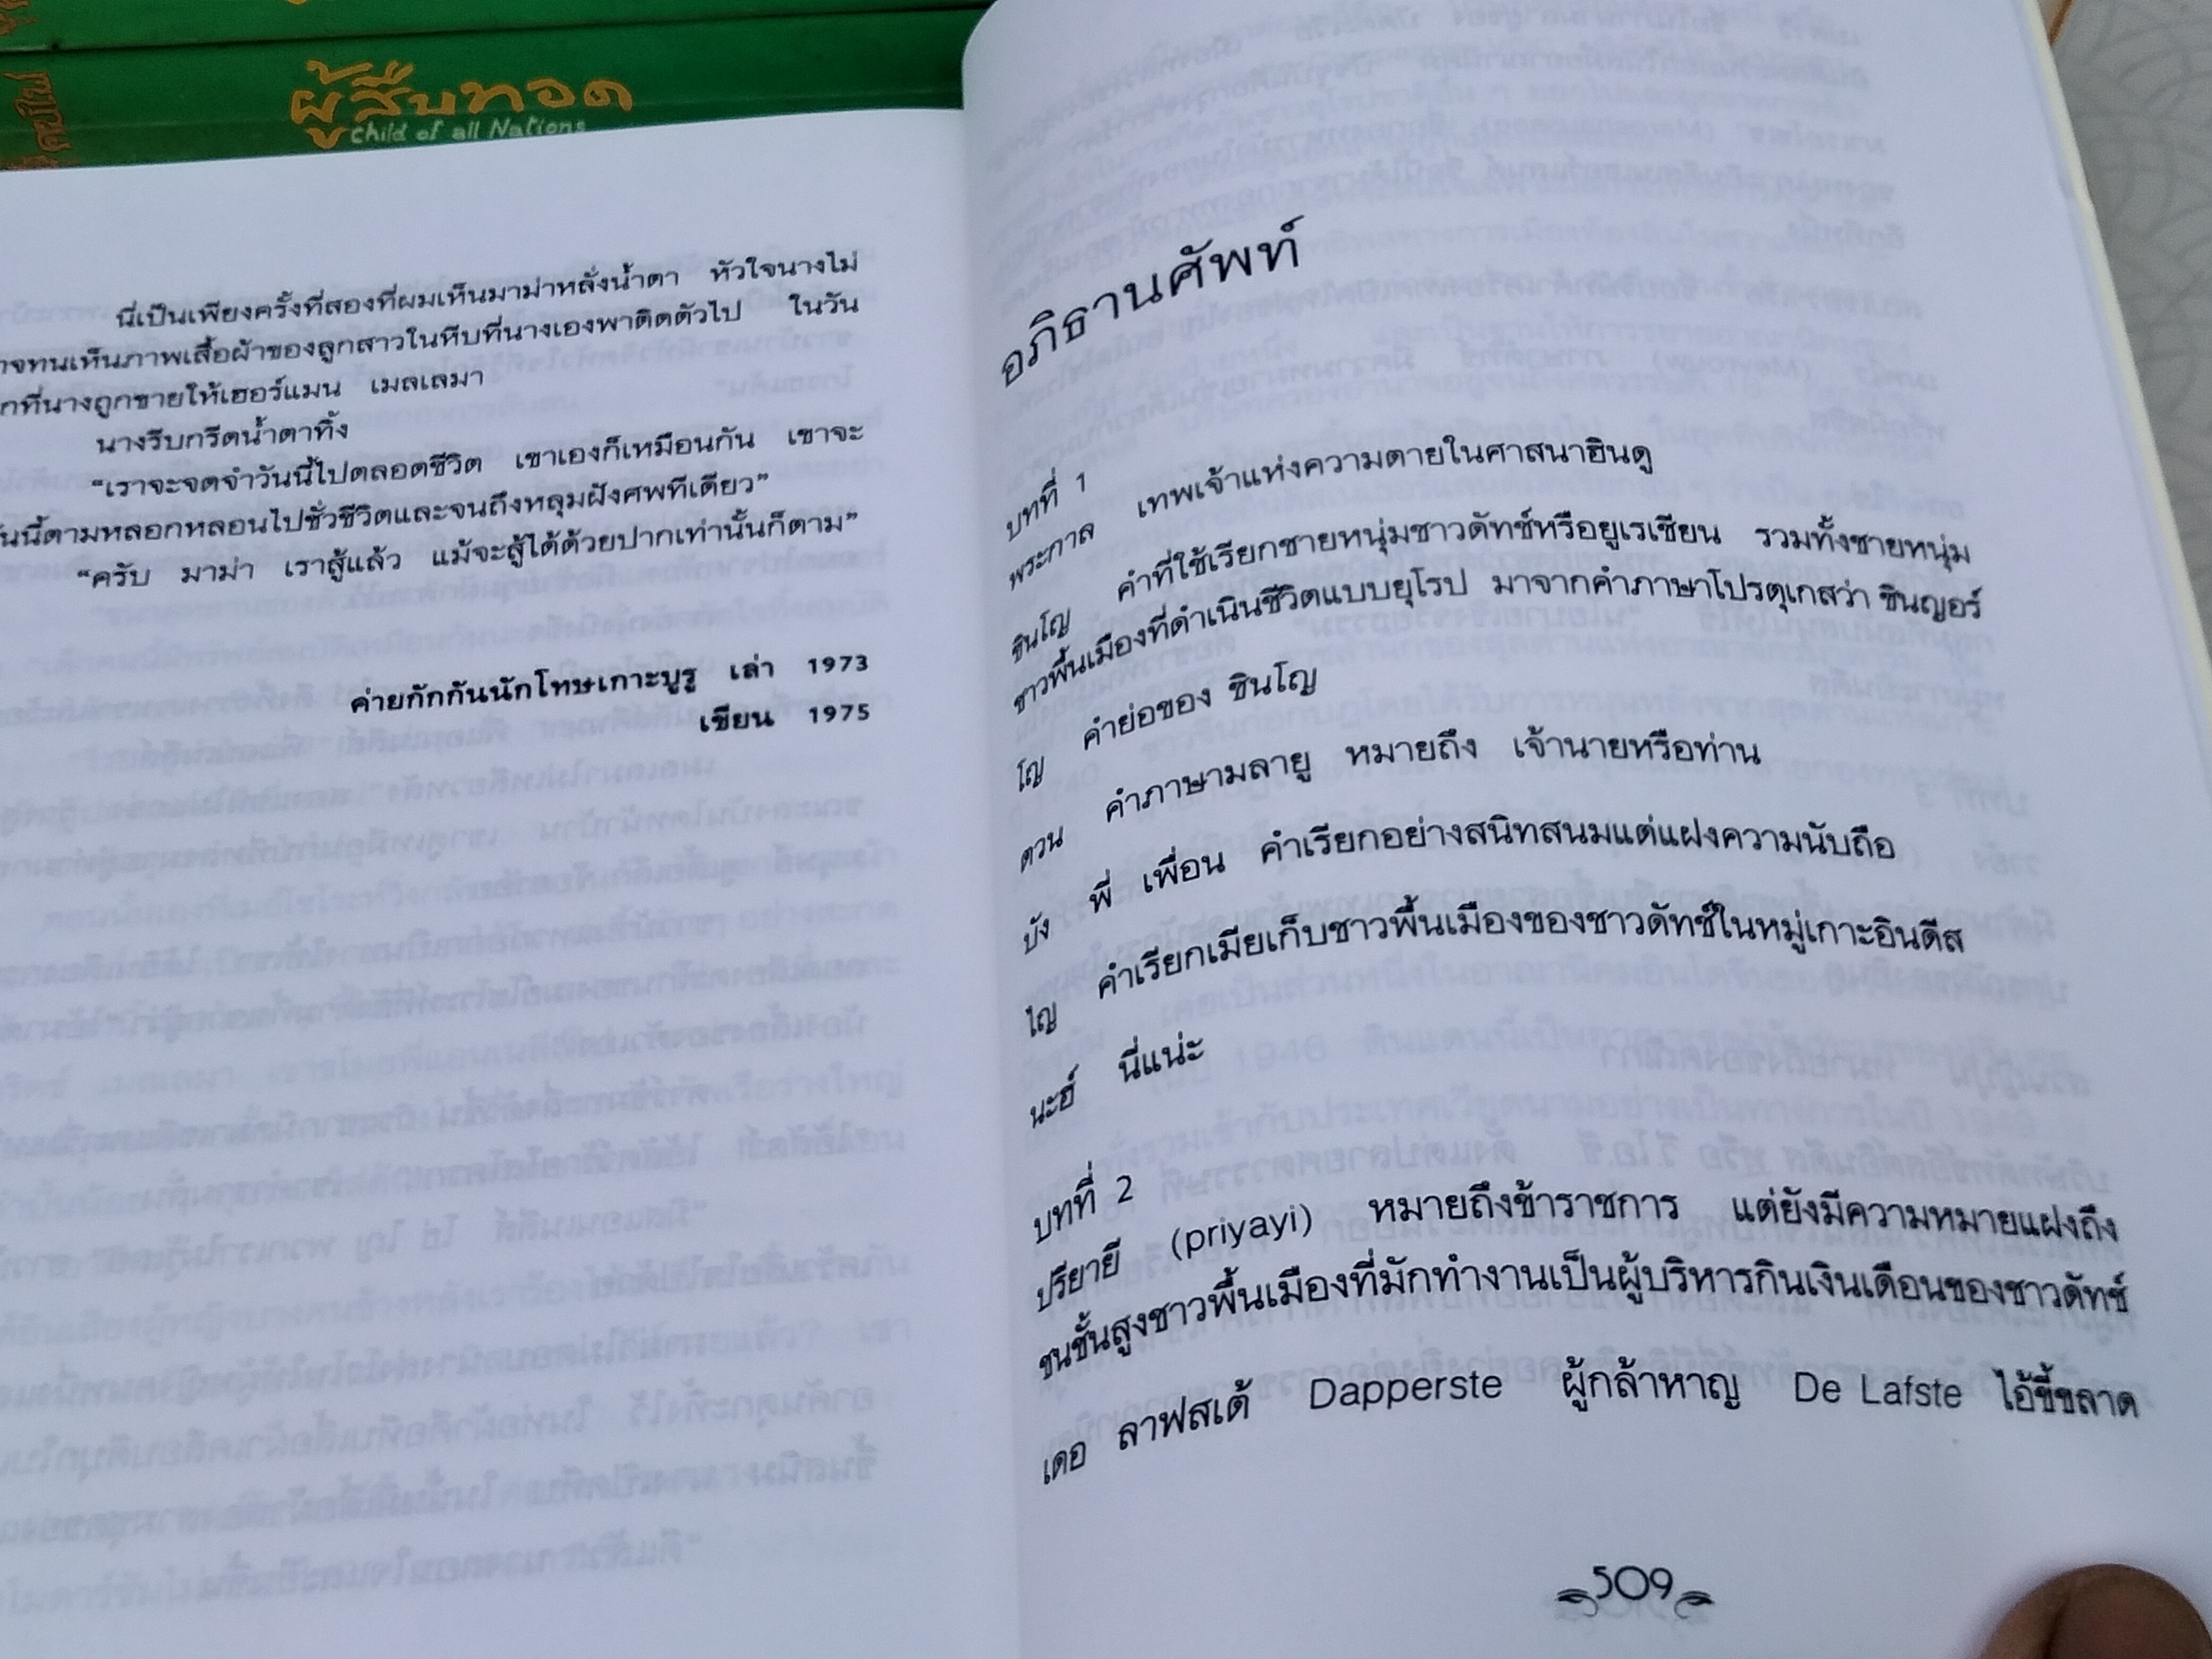 ผู้สืบทอด
Child of all Nations
นี่เป็นเพียงครั้งที่สองที่ผมเห็นมาม่าหลั่งน้ำตา หัวใจนางไม่
าจทนเห็นภาพเสื้อผ้าของลูกสาวในหีบที่นางเองพาติดตัวไป ในวัน
กที่นางถูกขายให้เฮอร์แมน เมลเลมา
นางรีบกรีดน้ำตาทิ้ง
“เราจะจดจำวันนี้ไปตลอดชีวิต เขาเองก็เหมือนกัน เขาจะ
ันนี้ตามหลอกหลอนไปชั่วชีวิตและจนถึงหลุมฝังศพทีเดียว”
“ครับ มาม่า เราสู้แล้ว แม้จะสู้ได้ด้วยปากเท่านั้นก็ตาม”
ค่ายกักกันนักโทษเกาะบูรู เล่า 1973
เขียน 1975
อภิธานศัพท์
บทที่ 1
พระกาล เทพเจ้าแห่งความตายในศาสนาฮินดู
ซินโญ คำที่ใช้เรียกชายหนุ่มชาวดัทช์หรือยูเรเชียน รวมทั้งชายหนุ่ม
ชาวพื้นเมืองที่ดำเนินชีวิตแบบยุโรป มาจากคำภาษาโปรตุเกสว่า ซินญอร์
โญ คำย่อของ ซินโญ
ตวน คำภาษามลายู หมายถึง เจ้านายหรือท่าน
บัง พี่ เพื่อน คำเรียกอย่างสนิทสนมแต่แฝงความนับถือ
ไญ คำเรียกเมียเก็บชาวพื้นเมืองของชาวดัทช์ในหมู่เกาะอินดีส
นะฮ์ นี่แน่ะ
บทที่ 2
ปรียายี (priyayi) หมายถึงข้าราชการ แต่ยังมีความหมายแฝงถึง
ชนชั้นสูงชาวพื้นเมืองที่มักทำงานเป็นผู้บริหารกินเงินเดือนของชาวดัทช์
เดอ ลาฟสเต้ Dapperste ผู้กล้าหาญ De Lafste ไอ้ขี้ขลาด
509